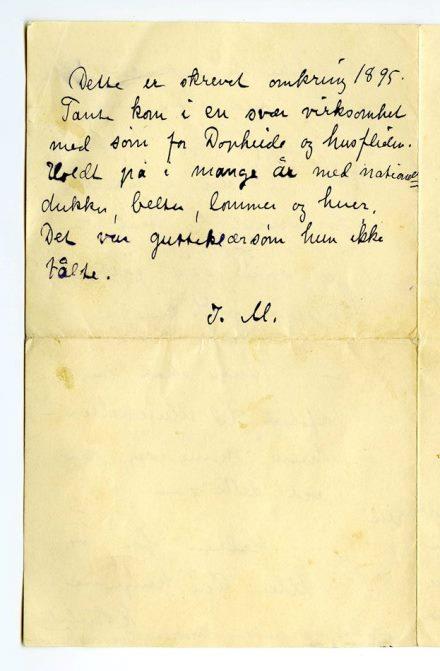 Dette er skrevet omkring 1895.
Tante kom i en svær virksomhet
med søm for Dopheide og husfliden.
Holdt på i mange år med national
dukker, belter, lommer og huer.
Det var guttiklærsøm hun ikke
tålte.
J. M.